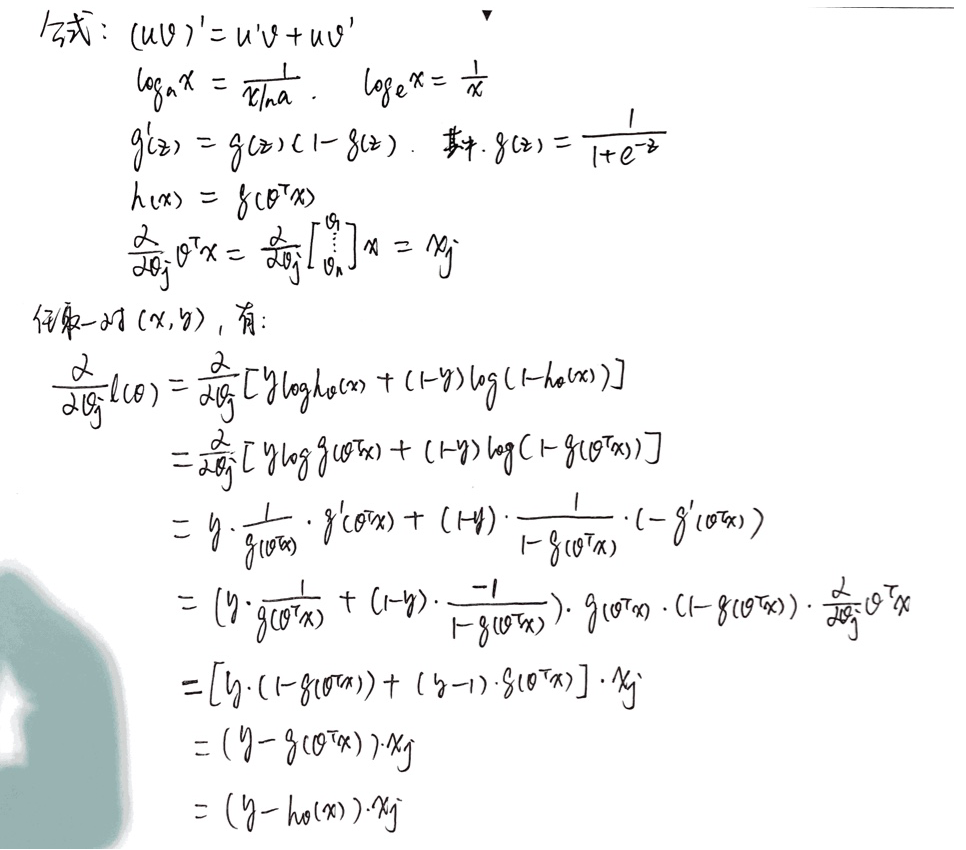 公式: (uv)' = u'v + uv'
logₐx = 1/(x ln a) . logₑx = 1/x
g'(z) = g(z)(1-g(z)). 其中. g(z) = 1/(1+e^{-z})
h(x) = g(θᵀx)
∂/∂θj θᵀx = ∂/∂θj [θ₁ ⋮ θₙ] x = xj
任取一对 (x, y), 有:
∂/∂θj l(θ) = ∂/∂θj [y log hθ(x) + (1-y) log(1-hθ(x))]
= ∂/∂θj [y log g(θᵀx) + (1-y) log(1-g(θᵀx))]
= y · 1/g(θᵀx) · g'(θᵀx) + (1-y) · 1/(1-g(θᵀx)) · (-g'(θᵀx))
= (y · 1/g(θᵀx) + (1-y) · -1/(1-g(θᵀx))) · g(θᵀx) · (1-g(θᵀx)) · ∂/∂θj θᵀx
= [y · (1-g(θᵀx)) + (y-1) · g(θᵀx)] · xj
= (y - g(θᵀx)) · xj
= (y - hθ(x)) · xj